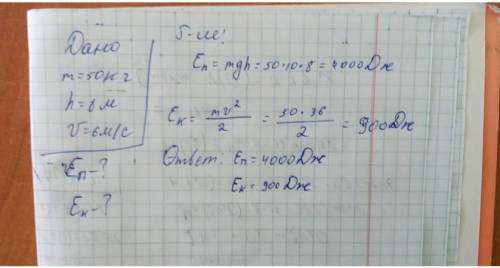 Дано
m=50кг
h=8м
V=6м/с
Eп-?
Eк-?
Eп=mgh=50·10·8=4000Дж
Eк=mv²/2=50·36/2=900Дж
Ответ: Eп=4000Дж
Eк=900Дж